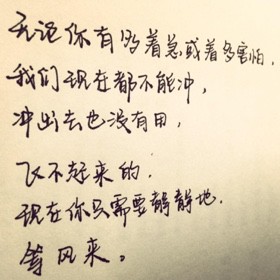 无论你有多着急或着多害怕，
我们现在都不能冲，
冲出去也没有用，
飞不起来的．
现在你只需要静静地．
等风来。